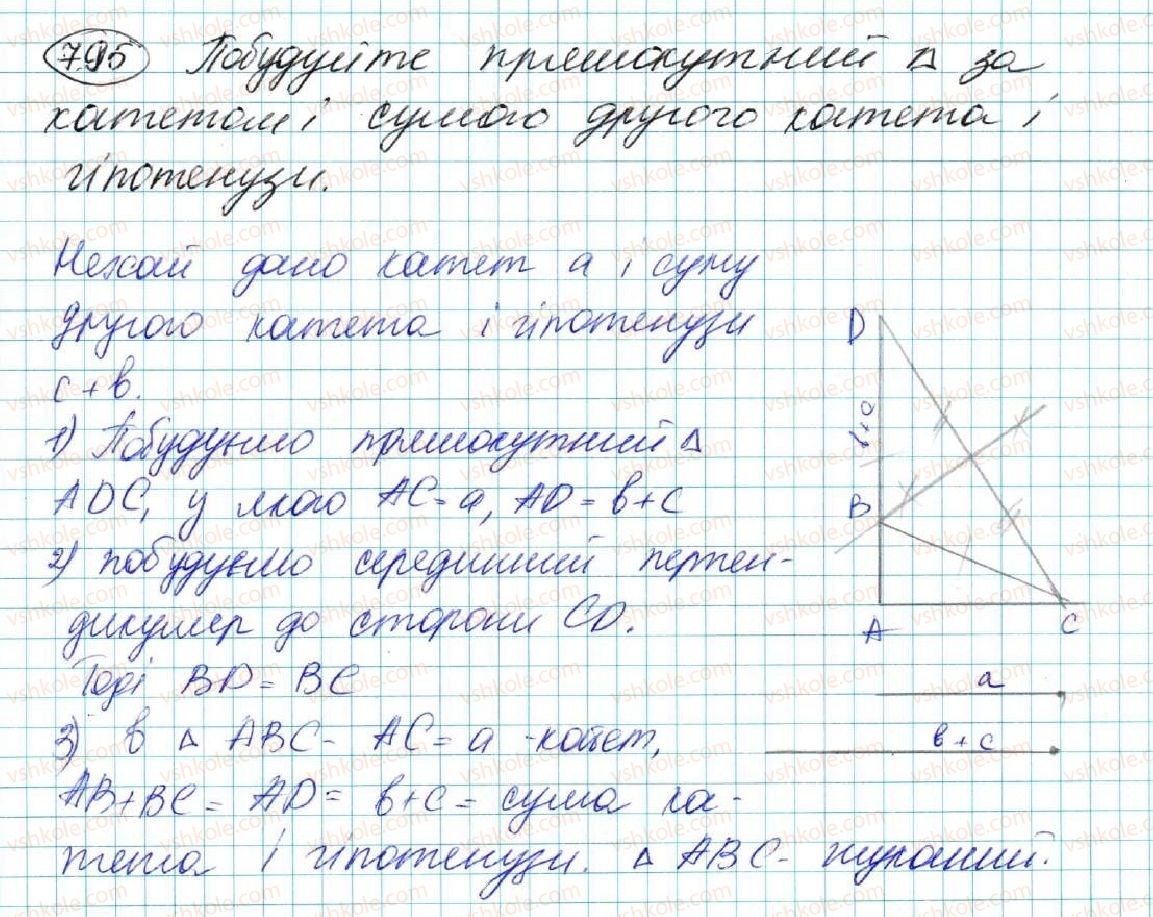 795 Побудуйте прямокутний Δ за
катетом і сумою другого катета і
гіпотенузи.
Нехай дано катет a і суму
другого катета і гіпотенузи
c + b.
1) Побудуємо прямокутний Δ
ADC, у якого AC = a, AD = b + c
2) побудуємо серединний перпен-
дикуляр до сторони CD.
Тоді BD = BC
3) в Δ ABC - AC = a - катет,
AB + BC = AD = b + c = сума ка-
тета і гіпотенузи. Δ ABC - шуканий.
D
b+c
B
A
C
a
b + c
vshkole.com